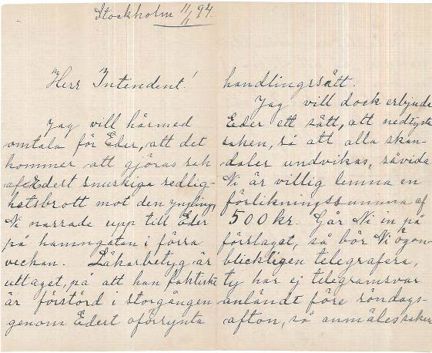 Stockholm 11/1 94.
Herr Intendent!
Jag vill härmed
omtala för Eder, att det
kommer att göras sak
af Edert smutsiga sedlig-
hetsbrott mot den yngling
Ni narrade upp till Eder
på hamngatan i förra
veckan. Läkarbetyg är
uttaget, på att han faktiskt
är förstörd i storgången
genom Edert oförsynta
handlingssätt.
Jag vill dock erbjuda
Eder ett sätt, att nedtysta
saken, så att alla skan-
daler undvikas, såvida
Ni är villig lemna en
förlikningssumma af
500 kr. Går Ni in på
förslaget, så bör Ni ögon-
blickligen telegrafera,
ty har ej telegramsvar
anländt före söndags-
afton, så anmäles saken